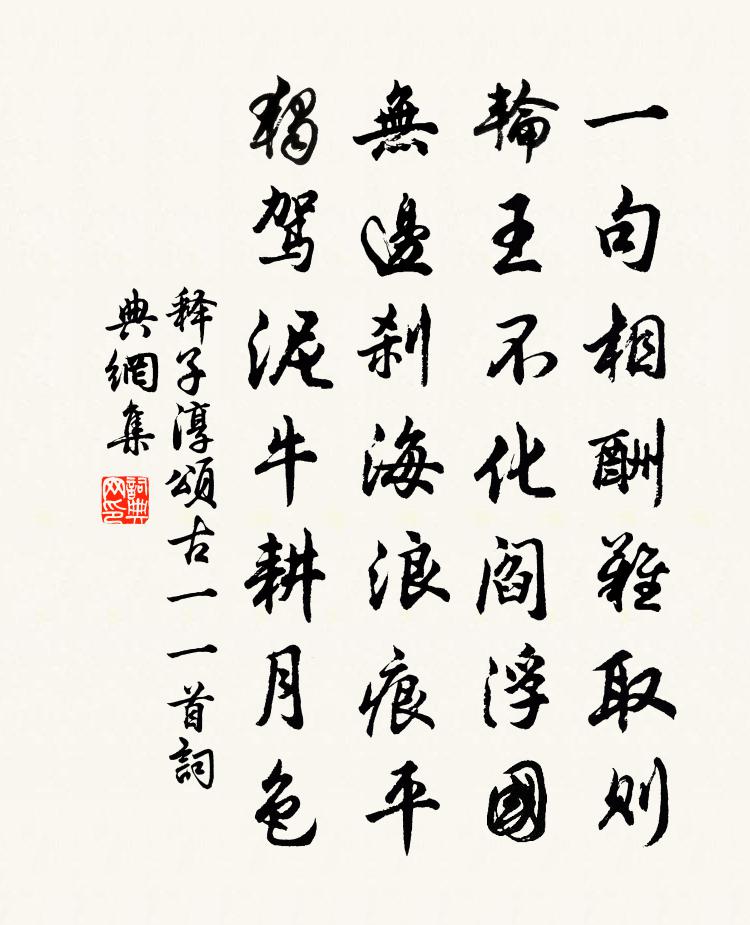 一句相酬難取則
輪王不化閻浮國
無邊剎海浪痕平
獨駕泥牛耕月色
释子淳頌古一一首詞
典網集
詞典网印